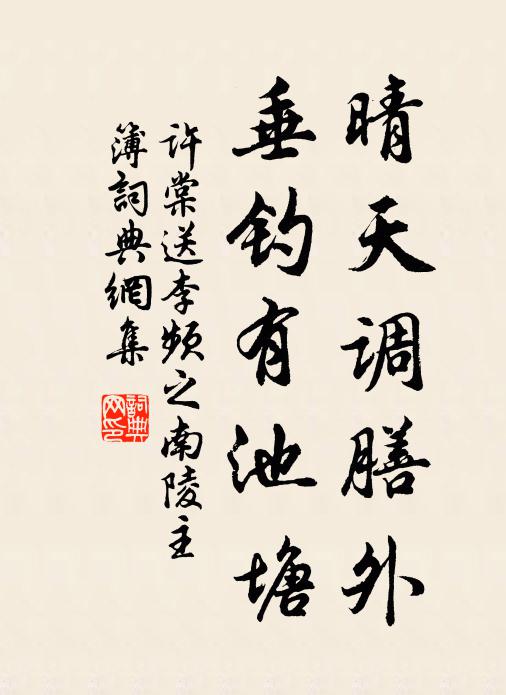 晴天调膳外
垂钓有池塘
许棠送李频之南陵主
簿词典網集
詞典
网印